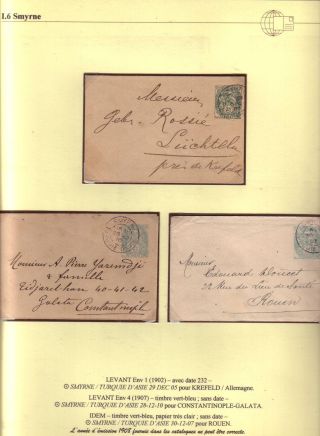 I.6 Smyrne
Messieurs
Gebr. Rossié
Süchteln
près de Krefeld
Monsieur A. Pierre Yaremdji
& famille
40-41-42
Galata Constantinple
Monsieur
Edouard Doucet
22 Rue du Lieu de Santé
Rouen
LEVANT Env 1 (1902) – avec date 232 –
SMYRNE / TURQUIE D'ASIE 29 DEC 05 pour KREFELD / Allemagne.
LEVANT Env 4 (1907) – timbre vert-bleu ; sans date –
SMYRNE / TURQUIE D'ASIE 28-12-10 pour CONSTANTINOPLE-GALATA.
IDEM – timbre vert-bleu, papier très clair ; sans date –
SMYRNE / TURQUIE D'ASIE 30-12-07 pour ROUEN.
L'année d'émission 1908 fournie dans les catalogues ne peut être correcte.